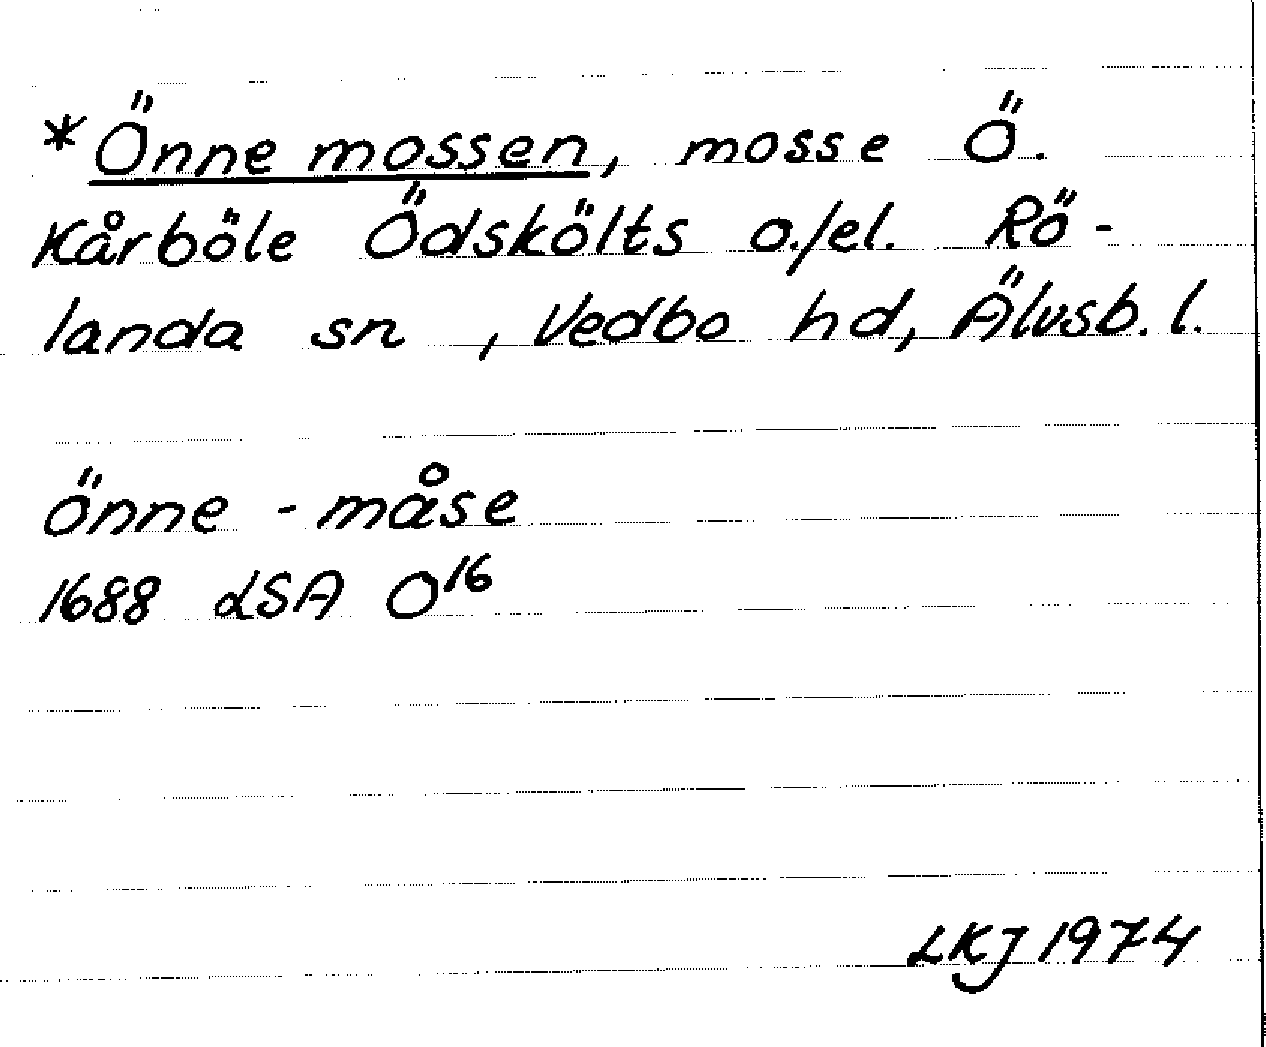 *Önne mossen, mosse Ö.
Kårböle Ödskölts o./el. Rö-
landa sn, Vedbo hd, Älvsb. l.
önne - måse
1688 LSA O16
LKJ 1974